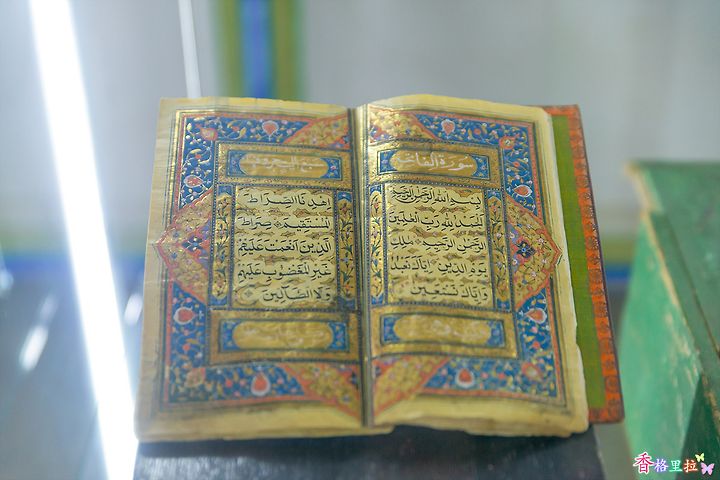 سورة الفاتحة
بسم الله الرحمن الرحيم
الحمد لله رب العلمين
الرحمن الرحيم ملك
يوم الدين اياك نعبد
واياك نستعين
اهدنا الصراط
المستقيم صراط
الذين انعمت عليهم
غير المغضوب عليهم
ولا الضآلين
香格里拉